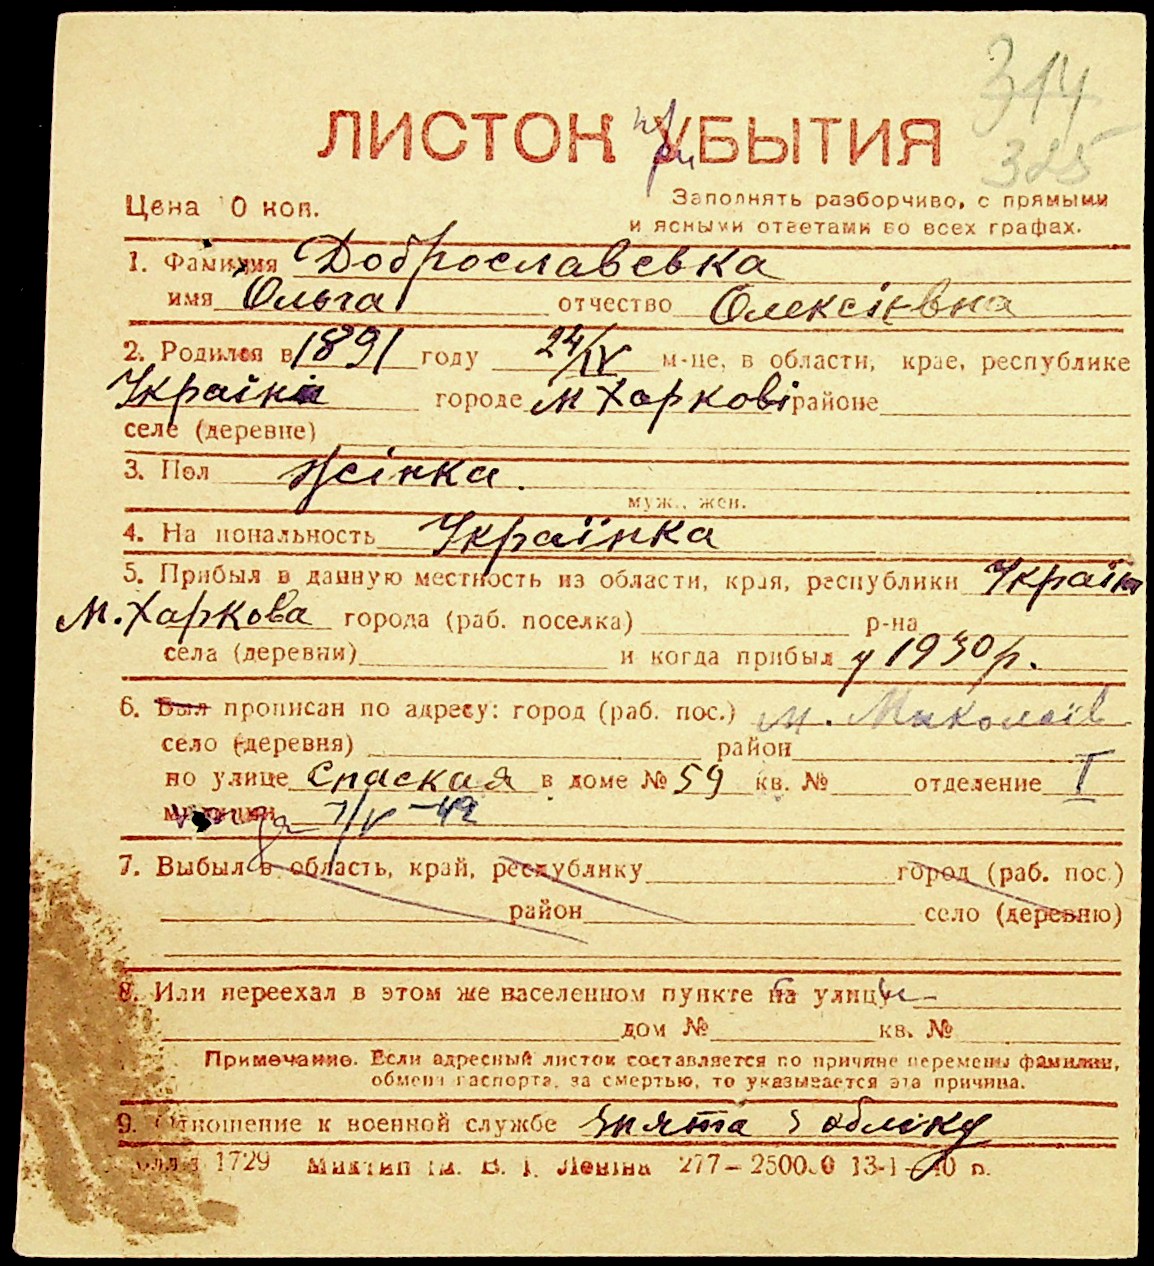 314
325
ЛИСТОК при УБЫТИЯ
Цена 10 коп.
Заполнять разборчиво, с прямыми
и ясными ответами во всех графах.
1. Фамилия Доброславська
имя Ольга отчество Олексіївна
2. Родился в 1891 году 24/IV м-це, в области, крае, республике
Україні городе м Харкові районе
селе (деревне)
3. Пол жінка.
муж., жен.
4. Национальность Українка
5. Прибыл в данную местность из области, края, республики Україна
м. Харкова города (раб. поселка) р-на
села (деревни) и когда прибыл у 1930 р.
6. Был прописан по адресу: город (раб. пос.) м. Миколаїв
село (деревня) район
по улице Спаская в доме № 59 кв. № отделение I
милиции 7/V-42
7. Выбыл в область, край, республику город (раб. пос.)
район село (деревню)
8. Или переехал в этом же населенном пункте на улицу
дом № кв. №
Примечание. Если адресный листок составляется по причине перемены фамилии,
обмена паспорта, за смертью, то указывается эта причина.
9. Отношение к военной службе знята з обліку
1729 Миктип ім. В. І. Леніна 277–250000 13-1-40 р.